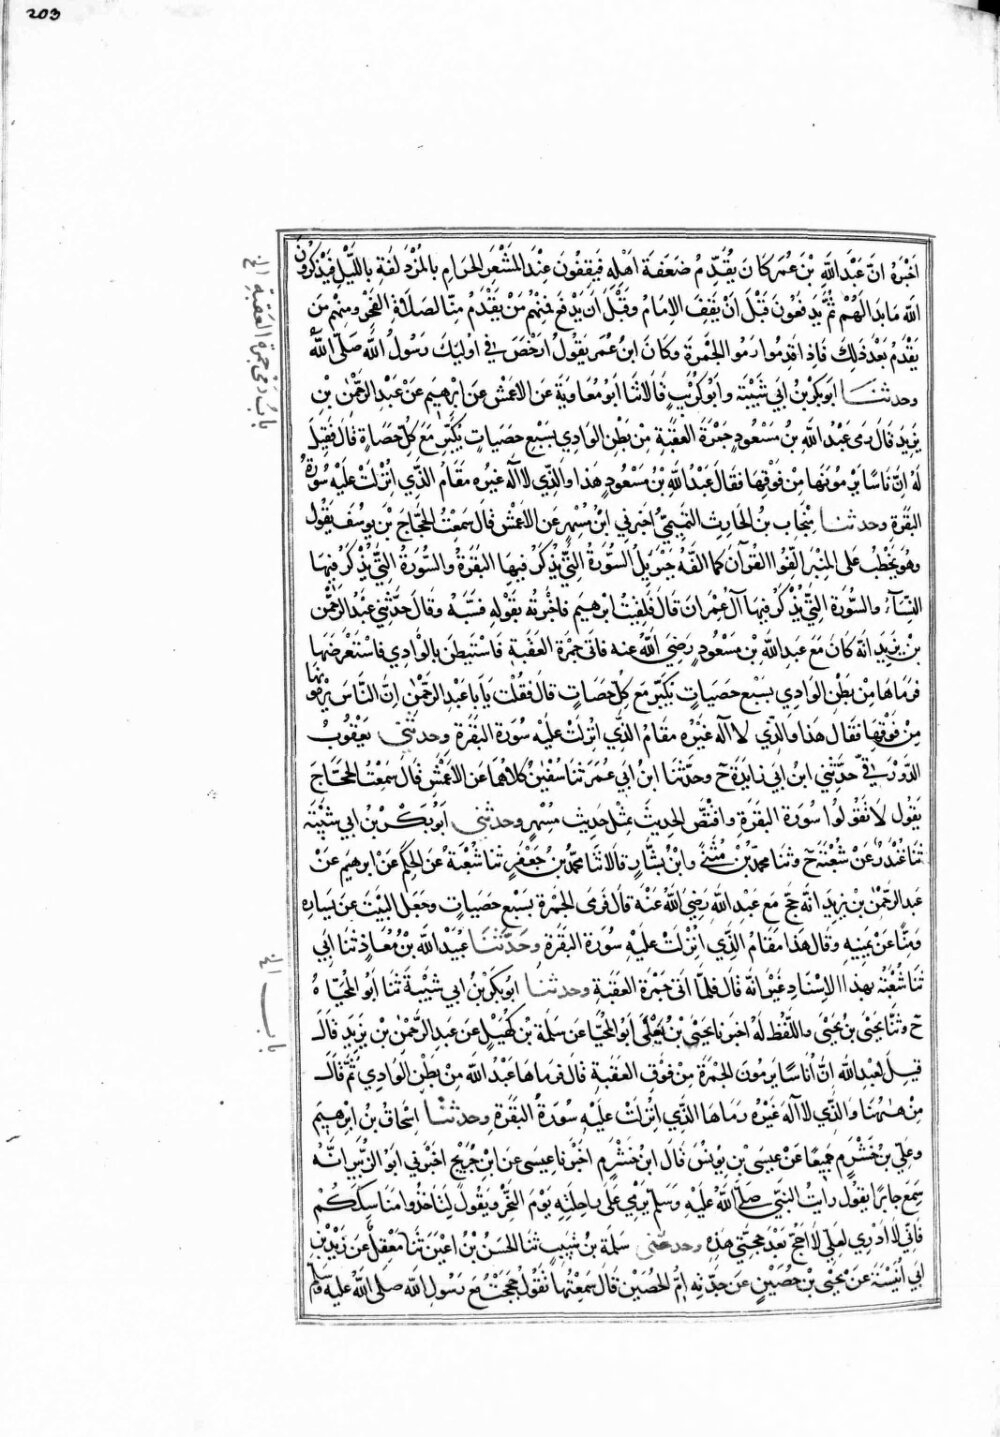 203
اخبره انّ عَبْدَ اللّهِ بْنَ عُمَرَ كانَ يُقَدِّمُ ضَعَفَةَ اَهْلِهِ فَيَقِفُونَ عِنْدَ المَشْعَرِ الحَرامِ بِالمُزْدَلِفَةِ بِاللَّيْلِ فَيَذْكُرُونَ
اللّه مَا بَدَا لَهُمْ ثُمَّ يَدفَعُونَ قَبْلَ اَنْ يَقِفَ الاِمَامُ وَقَبْلَ اَنْ يَدْفَعَ فَمِنْهُمْ مَنْ يَقْدَمُ مِنًا لِصَلَاةِ الفَجْرِ وَمِنْهُمْ مَن
يَقْدَمُ بَعْدَ ذَلِكَ فَاِذَا قَدِمُوا رَمَوُا الجَمْرَةَ وَكَانَ ابنُ عُمَرَ يَقُولُ اَرْخَصَ في اُولَئِكَ رَسُولُ اللّه صَلّى اللّهُ
وحدثنا ابوبكر بنُ ابي شَيْبَة وابُو كُرَيْبٍ قَالَا ثنا ابُو مُعَاوِيَةَ عَنِ الاَعْمَشِ عَنْ اِبْرهِيم عَنْ عَبْدِ الرَّحْمٰنِ بْنِ
يَزِيدَ قَالَ رَمَى عَبْدُ اللّهِ بْنُ مَسْعُودٍ جَمْرَةَ العَقَبَةِ مِنْ بَطْنِ الوَادِي بِسَبْعِ حَصَيَاتٍ يُكَبِّرُ مَعَ كُلِّ حَصَاةٍ قَالَ فَقِيلَ
لَهُ اِنَّ نَاسًا يَرْمُونَهَا مِنْ فَوْقِهَا فَقَالَ عَبْدُ اللّه بْنُ مَسْعُودٍ هَذَا وَالَّذِي لَا اِلَهَ غَيْرُهُ مَقَامُ الَّذِي اُنْزِلَتْ عَلَيْهِ سُورَةُ
البَقَرَةِ وحدثنا مِنْجَابُ بنُ الحَارِثِ التَمِيمِيُّ اخبرني ابْنُ مُسْهِرٍ عَنِ الاَعْمَشِ قَالَ سَمِعْتُ الحَجَّاجَ بْنَ يُوسُفَ يَقُولُ
وهُوَ يَخْطُبُ عَلى المِنْبَرِ اَلِّفُوا القُرآنَ كَمَا الَّفَهُ جِبْرِيلُ السُّورَةُ الَّتِي يُذْكَرُ فِيهَا البَقَرَةُ والسُّورَةُ الَّتِي يُذْكَرُ فِيهَا
النِّسَاءُ والسُّورَةُ الَّتِي يُذْكَرُ فِيهَا آلُ عِمْرَانَ قَالَ فَلَقِيتُ ابْرهيمَ فَاخْبَرْتُهُ بِقَوْلِهِ فَسَبَّهُ وَقَالَ حَدَّثَنِي عَبْدُ الرَّحْمٰن
بْنُ يَزِيدَ انّهُ كَانَ مَعَ عَبدِ اللّهِ بْنِ مَسْعُودٍ رَضِيَ اللّهُ عنه فَاتَى جَمْرَةَ العَقَبَةِ فَاسْتَبْطَنَ بِالْوَادِي فَاسْتَعْرَضَهَا
فَرَمَاهَا مِنْ بَطْنِ الوَادِي بِسَبْعِ حَصَيَاتٍ يُكَبِّرُ مَعَ كُلِّ حَصَاتٍ قَالَ فَقُلْتُ يَا بَا عَبْدِ الرَّحْمٰنِ اِنَّ النَّاسَ يَرْمُونَهَا
مِنْ فَوْقِهَا فَقَالَ هَذَا وَالَّذِي لَا اِلَهَ غَيْرُهُ مَقَامُ الذِّي اُنْزِلَتْ عَلَيْهِ سُورَةُ البَقَرَةِ وحدثني يَعْقُوبُ
الدَّوْرَقِيُّ حَدَّثَنِي ابنُ ابي زَايِدَةَ ح وحَدّثَنا ابنُ ابي عُمَرَ ثنا سُفْيٰنُ كِلَاهُمَا عَنِ الاَعْمَشِ قَالَ سَمِعْتُ الحَجَّاجَ
يَقُولُ لَا تَقُولُوا سُورَةُ البَقَرَةِ وَاقْتَصَّ الحَدِيثَ بِمثْلِ حَدِيثِ مُسْهِرٍ وحدثني اَبُوبَكْرِ بنُ ابي شَيْبَة
ثنا غُنْدَرٌ عَنْ شُعْبَةَ ح وثنا محمّدُ بْنُ مُثَنًّى وابْنُ بَشَّارٍ قَالَا ثنا مُحَمَّدُ بْنُ جَعْفَرٍ ثنا شُعْبَةُ عَنِ الحَكَمِ عَنْ ابرهيم عَنْ
عَبدِ الرَّحْمٰنِ بْنِ يَزِيدَ انّهُ حَجَّ مَعَ عَبدِ اللّه رَضِيَ اللّهُ عَنْهُ قَالَ فَرَمَى الجَمْرَةَ بِسَبْعِ حَصَيَاتٍ وَجَعَلَ البَيْتَ عَنْ يَسَارِهِ
وَمِنًا عَنْ يَمِينِهِ وَقَالَ هَذَا مَقَامُ الَّذِي اُنْزِلَتْ عَلَيْهِ سُورَةُ البَقَرَةِ وَحَدَّثَنَا عُبَيْدُ اللّهِ بْنُ مُعَاذٍ ثنا اَبي
ثنا شُعْبَةُ بِهذا الاِسْنَادِ غَيْرَ انّهُ قَالَ فَلَمَّا اتَى جَمْرَةَ العَقَبَةِ وحدثنا ابُوبَكرِ بْنُ ابي شَيْبَةَ ثنا ابُو المُحَيَّاةِ
ح وَثَنَا يَحْيَى بنُ يَحْيَى واللَّفْظُ لَهُ اخبرنا يَحْيَى بْنُ يَعْلَى ابُو المُحَيَّا عَنْ سَلَمَةَ بْنِ كُهَيْلٍ عَنْ عَبدِ الرَّحْمٰنِ بْنِ يَزِيدَ قَالَ
قِيلَ لِعَبدِ اللّه اِنَّ اُنَاسًا يَرْمُونَ الجَمْرَةَ مِنْ فَوْقِ العَقَبَةِ قَالَ فَرَمَاهَا عَبْدُ اللّه مِنْ بَطْنِ الوَادِي ثُمَّ قَالَ
مِنْ هٰهُنَا وَالَّذِي لَا اِلَهَ غَيْرُهُ رَمَاهَا الَّذِي اُنْزِلَتْ عَلَيْهِ سُورَةُ البَقَرَةِ وحدثنا اِسْحَاقُ بْنُ اِبْرهيم
وعَلِيُّ بْنُ خَشْرَمٍ جَمِيعًا عَنْ عِيسَى بْنِ يُونُسَ قَالَ ابنُ خَشْرَمٍ اخبرنا عِيسَى عَنِ ابْنِ جُرَيْجٍ اخبرني ابُو الزُّبَيْرِ انّهُ
سَمِعَ جَابِرًا يَقُولُ رَايْتُ النَّبِيَّ صَلّى اللّهُ عَلَيْهِ وَسَلّم يَرْمِي عَلَى رَاحِلَتِهِ يَوْمَ النَّحْرِ وَيَقُولُ لِتَاخُذُوا مَنَاسِكَكُمْ
فَانِّي لَا ادْرِي لَعَلِّي لَا احُجُّ بَعْدَ حَجَّتِي هَذِهِ وحدثني سَلَمَةُ بْنُ شَبِيبٍ ثنا الحَسَنُ بْنُ اَعْيَنَ ثنا مَعْقِلٌ عَنْ زَيْدِ بْنِ
ابي اُنَيْسَةَ عَنْ يَحْيَى بْنِ حُصَيْنٍ عَنْ جَدَّتِهِ اُمِّ الحُصَيْنِ قَالَ سَمِعْتُهَا تَقُولُ حَجَجْتُ مَعَ رَسُولِ اللّه صلى اللّهُ عليه وسلم
بابُ رَمْيِ جَمْرَةِ العَقَبَةِ الخ
باب الخ